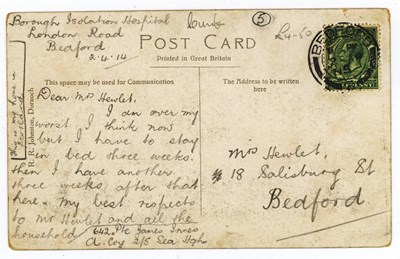 Borough Isolation Hospital
London Road
Bedford
2.4.14
5
£4-50
POST CARD
Printed in Great Britain
This space may be used for Communication
The Address to be written
here
BEDFORD
R. R. Johnston, Dornoch
Dear Mrs Hewlet,
I am over my
worst I think now
but I have to stay
in bed three weeks.
then I have another
three weeks after that
here. my best respects
to Mr Hewlet and all the
household
642. Pte James Innes
A. Coy 2/5 Sea Hgh
Mrs Hewlet,
18 Salisbury St
Bedford